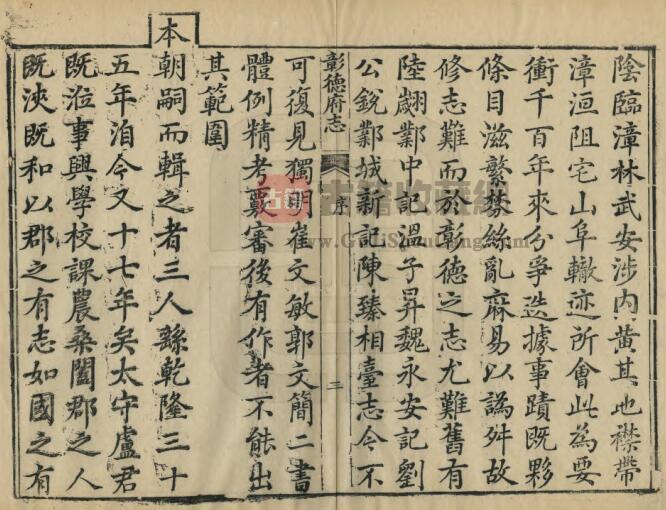 陰臨漳林武安涉內黃其地襟帶
漳洹阻宅山阜轍迹所會此為要
衝千百年來分爭迭據事蹟既夥
條目滋繁棼絲亂麻易以譌舛故
修志難而於彰德之志尤難舊有
陸翽鄴中記溫子昇魏永安記劉
公銳鄴城新記陳臻相臺志今不
彰德府志 序 二
可復見獨明崔文敏郭文簡二書
體例精考覈審後有作者不能出
其範圍
本朝嗣而輯之者三人繇乾隆三十
五年洎今又十七年矣太守盧君
既涖事興學校課農桑闔郡之人
既浹既和以郡之有志如國之有
古籍收藏網